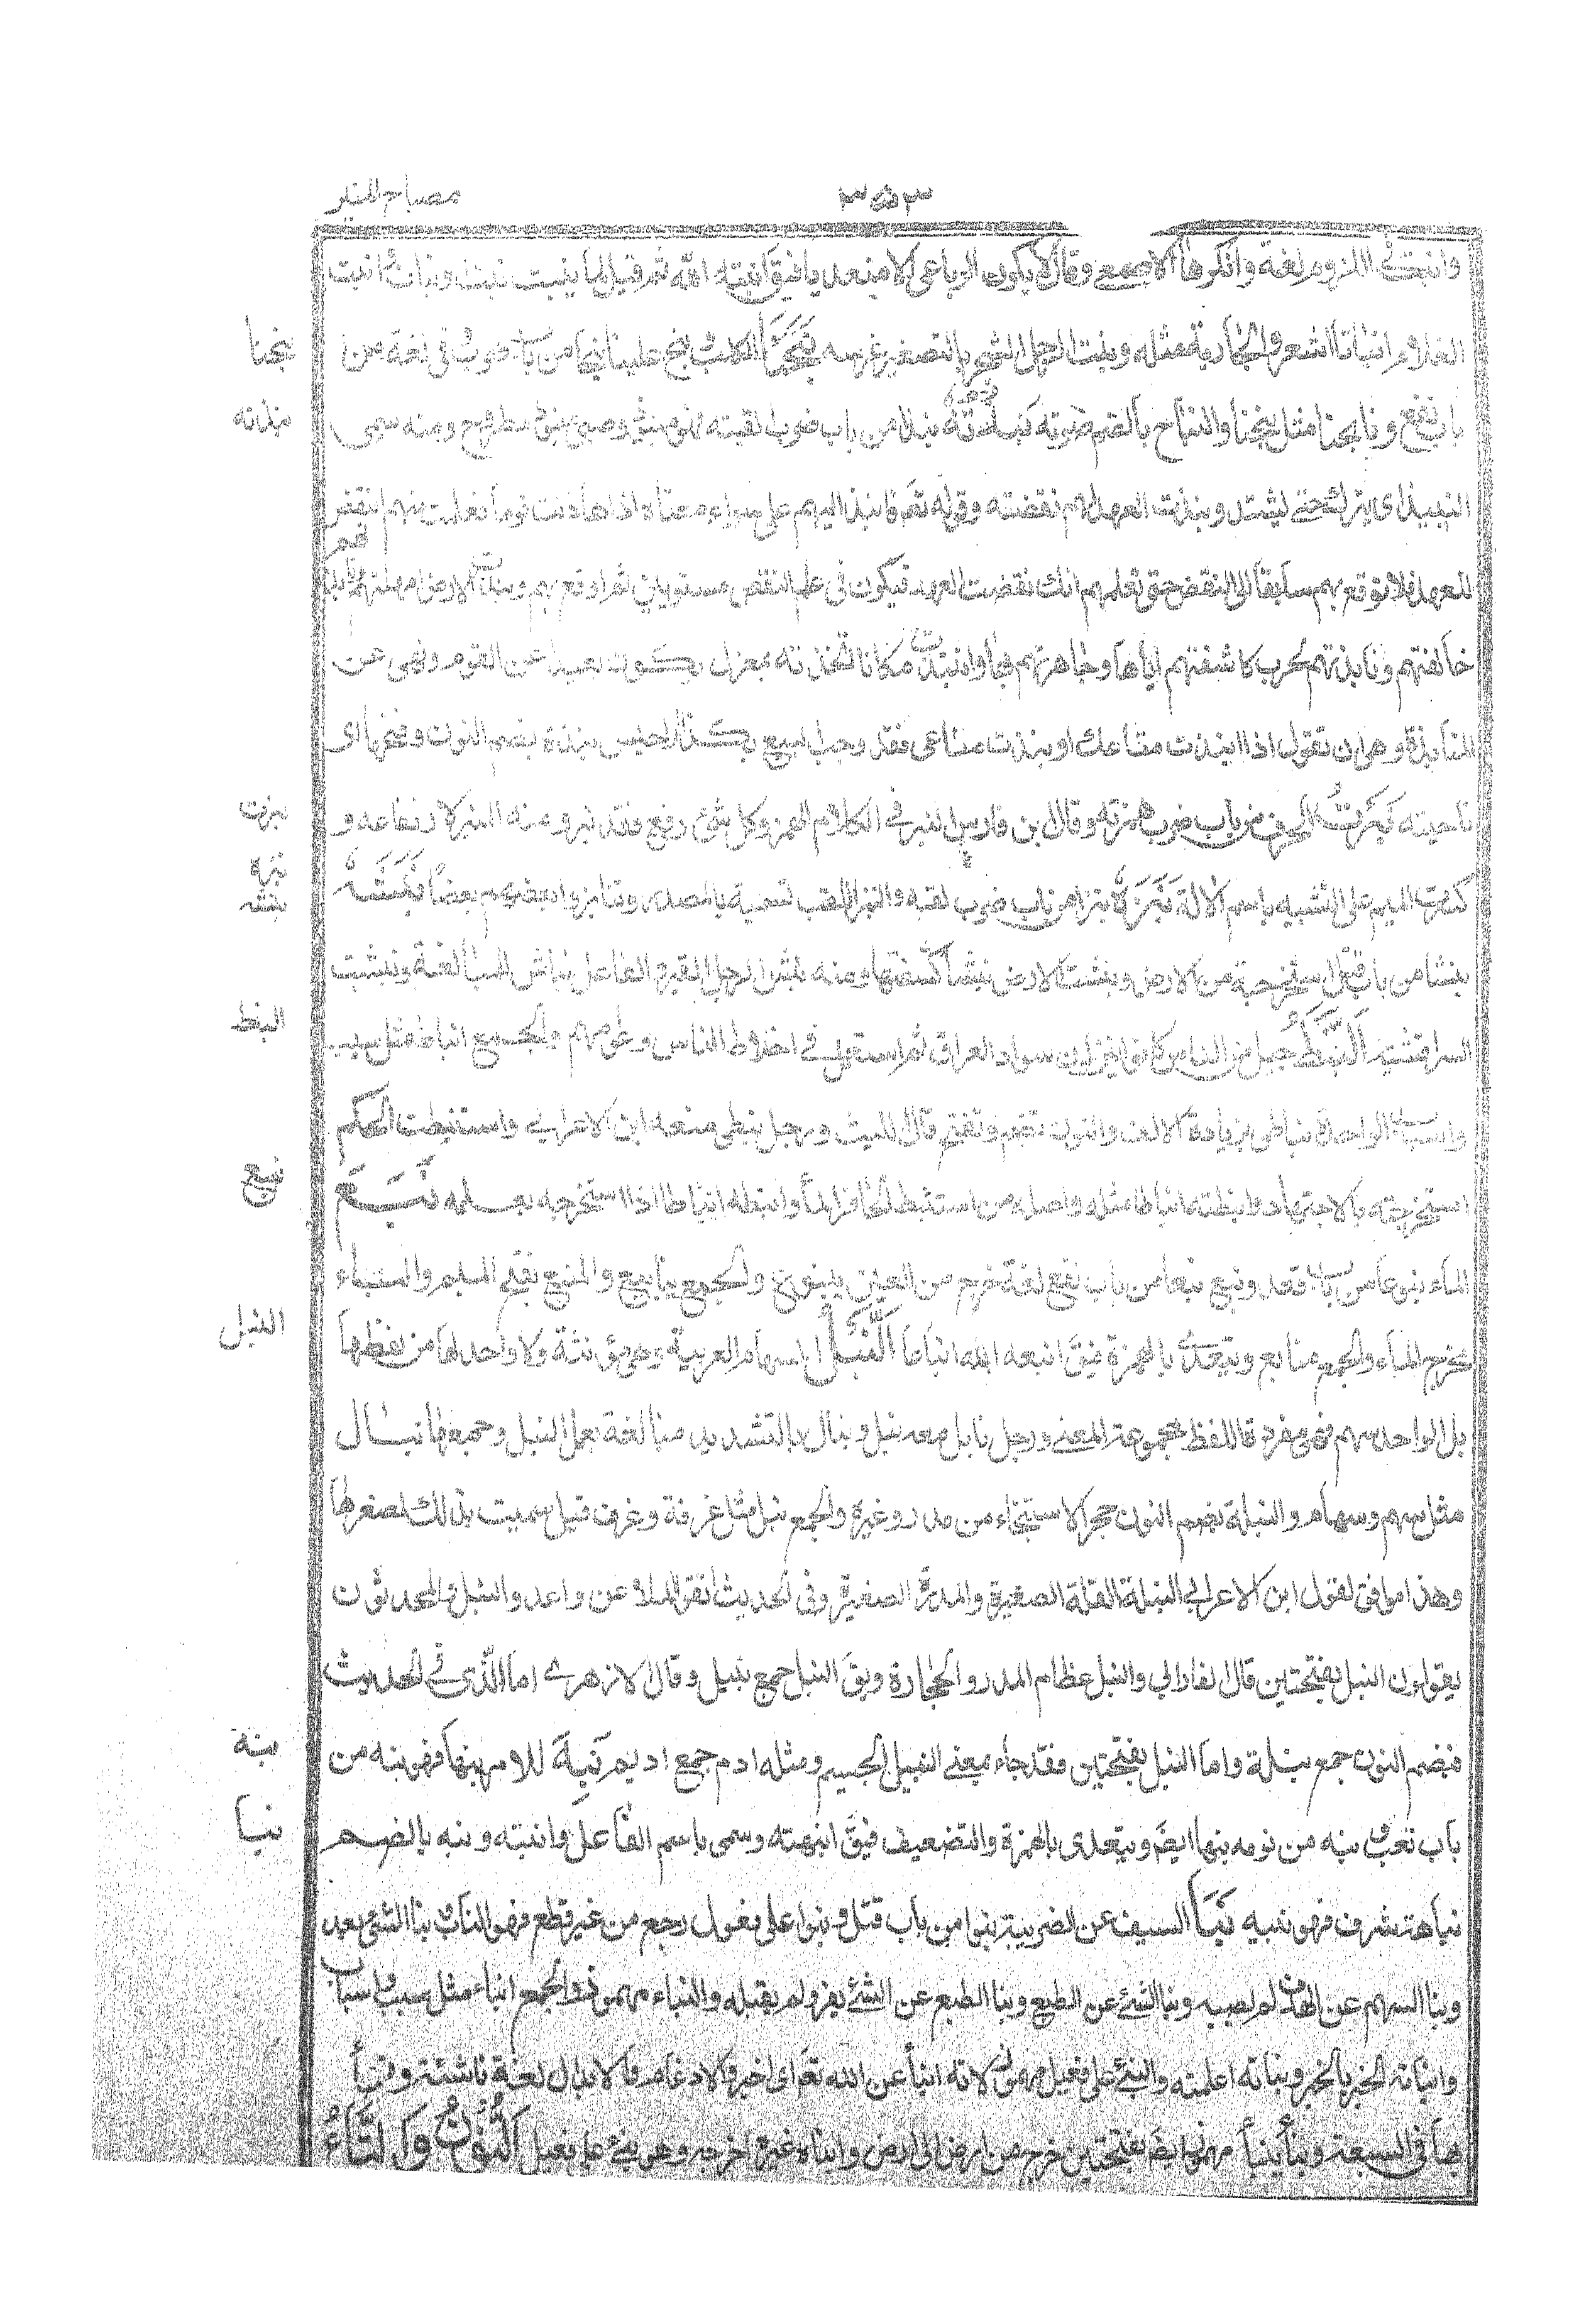 مصباح المنير
٣٥٣
وانبت فى اللزوم لغة وانكرها الاصمعى وقال لا يكون الرباعى الا متعديا فيق انبته الله ثم قيل لما ينبت نبت ونبات وانبت
الغلام انباتا اشعر والجارية مثله ونبت الرجل الشجر بالتصغير غرسه نَبَحَنَا الكلب ونبح علينا نبحا من باب ضرب وفى لغة من
نبحنا
باب نفع ونابحنا مثل نبحنا والنباح بالضم صوته نَبَذْتُهُ نبذا من باب ضرب القيته فهو منبوذ وصبى منبوذ مطروح ومنه سمى
نبذته
النبيذ لانه ينبذ اى يترك حتى يشتد ونبذت العهد لهم نقضته وقوله تعم فانبذ اليهم على سواء معناه اذا هادنت قوما فعلمت منهم النقض
للعهد فلا توقع بهم سابقا الى النقض حتى تعلمهم انك نقضت العهد فيكون فى علم النقض مستويين ثم اوقع بهم ونبذت الامر اهملته
خالفتهم ونابذتهم الحرب كاشفتهم اياها وجاهرتهم بها وانتبذت مكانا اتخذته بمعزل يكون بعيدا عن القوم ونهى عن
المنابذة وهى ان تقول اذا انبذت متاعك او نبذت متاعى فقد وجب البيع بكذا وجلس نبذة بضم النون وفتحها اى
ناحيته نَبَرْتُ الحرف من باب ضرب همزته وقال بن فارس النبر فى الكلام الهمز وكل شئ رفع فقد نبر ومنه المنبر لارتفاعه و
نبرت
كسرت الميم على التشبيه باسم الالة نَبَزَهُ نبزا من باب ضرب لقبه والنبز اللقب تسمية بالمصدر وتنابزوا نبز بعضهم بعضا نَبَشْتُهُ
نبزه
نبشه
نبشا من باب قتل استخرجته من الارض ونبشت الارض نبشا كشفتها ومنه نبش الرجل القبر والفاعل نباش للمبالغة ونبشت
السر افشيته اَلنَّبَطُ جيل من الناس كانوا ينزلون سواد العراق ثم استعمل فى اخلاط الناس وعوامهم والجمع انباط مثل سبب
النبط
واسباب الواحدة نباطى بزيادة الالف والنون تضم وتفتح قال الليث ورجل نبطى ومنعه ابن الاعرابى واستنبطت الحكم
استخرجته بالاجتهاد وانبطته انباطا مثله واصله من استنبط الحافر الماء وانبطه انباطا اذا استخرجه بعمله نَبَعَ
نبع
الماء نبوعا من باب قعد ونبع نبعا من باب نفع لغة خرج من العين ينبوع والجمع ينابيع والمنبع بفتح الميم والباء
مخرج الماء والجمع منابع ويتعدى بالهمزة فيق انبعه الله انباعا اَلنَّبْلُ السهام العربية وهى مؤنثة ولا واحد لها من لفظها
النبل
بل الواحد سهم فهى مفردة اللفظ مجموعة المعنى ورجل نابل معه نبل ونبال بالتشديد مبالغة يعمل النبل وجمعها نبال
مثل سهم وسهام والنبلة بضم النون حجر الاستنجاء من مدر وغيره والجمع نبل مثل غرفة وغرف قيل سميت بذلك لصغرها
وهذا موافق لقول ابن الاعرابى النبلة اللقمة الصغيرة والمدرة الصغيرة وفى الحديث اتقوا الملاعن واعدوا النبل والمحدثون
يقولون النبل بفتحتين قال الفارابى والنبل عظام المدر والحجارة ويق النبل جمع نبيل وقال الازهرى اما الذى فى الحديث
فبضم النون جمع نبلة واما النبل بفتحتين فقد جاء بمعنى النبيل الجسيم ومثله ادم جمع اديم نَبِهَ للامر نبها فهو نبه من
نبه
باب تعب ونبه من نومه نبها ايضا ويتعدى بالهمزة والتضعيف فيق انبهته وسمى باسم الفاعل وانتبه ونبه بالضم
نباهة شرف فهو نبيه نَبَا السيف عن الضريبة نبوا من باب قتل ونبوا على فعول رجع من غير قطع فهو ناب ونبا الشئ بعد
نبا
ونبا السهم عن الهدف لم يصبه ونبا الشئ عن الطبع ونبا الطبع عن الشئ نفر ولم يقبله والنباء مهموز الخبر والجمع انباء مثل سبب واسباب
وانباته الخبر بالخبر ونباته اعلمته والنبئ على فعيل مهموز لانه انبأ عن الله تعم اى اخبر والادغام والابدال لغة فاشية وقرئ
بها فى السبعة ونبأ ينبأ مهموز ايضا بفتحتين خرج من ارض الى ارض وانباه غيره اخرجه وهو نبئ على فعيل اَلنُّونُ وَالتَّاءُ